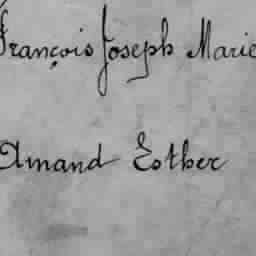 François Joseph Marie
Amand Esther